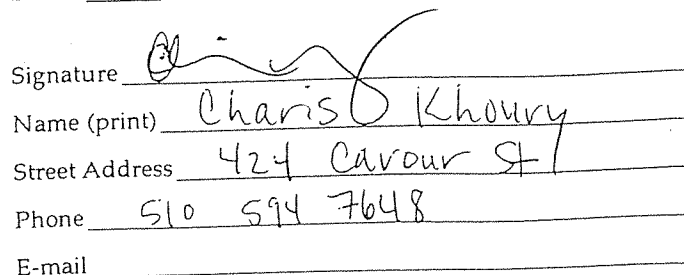 Signature
Name (print) Charis Khoury
Street Address 424 Cavour St
Phone 510 594 7648
E-mail